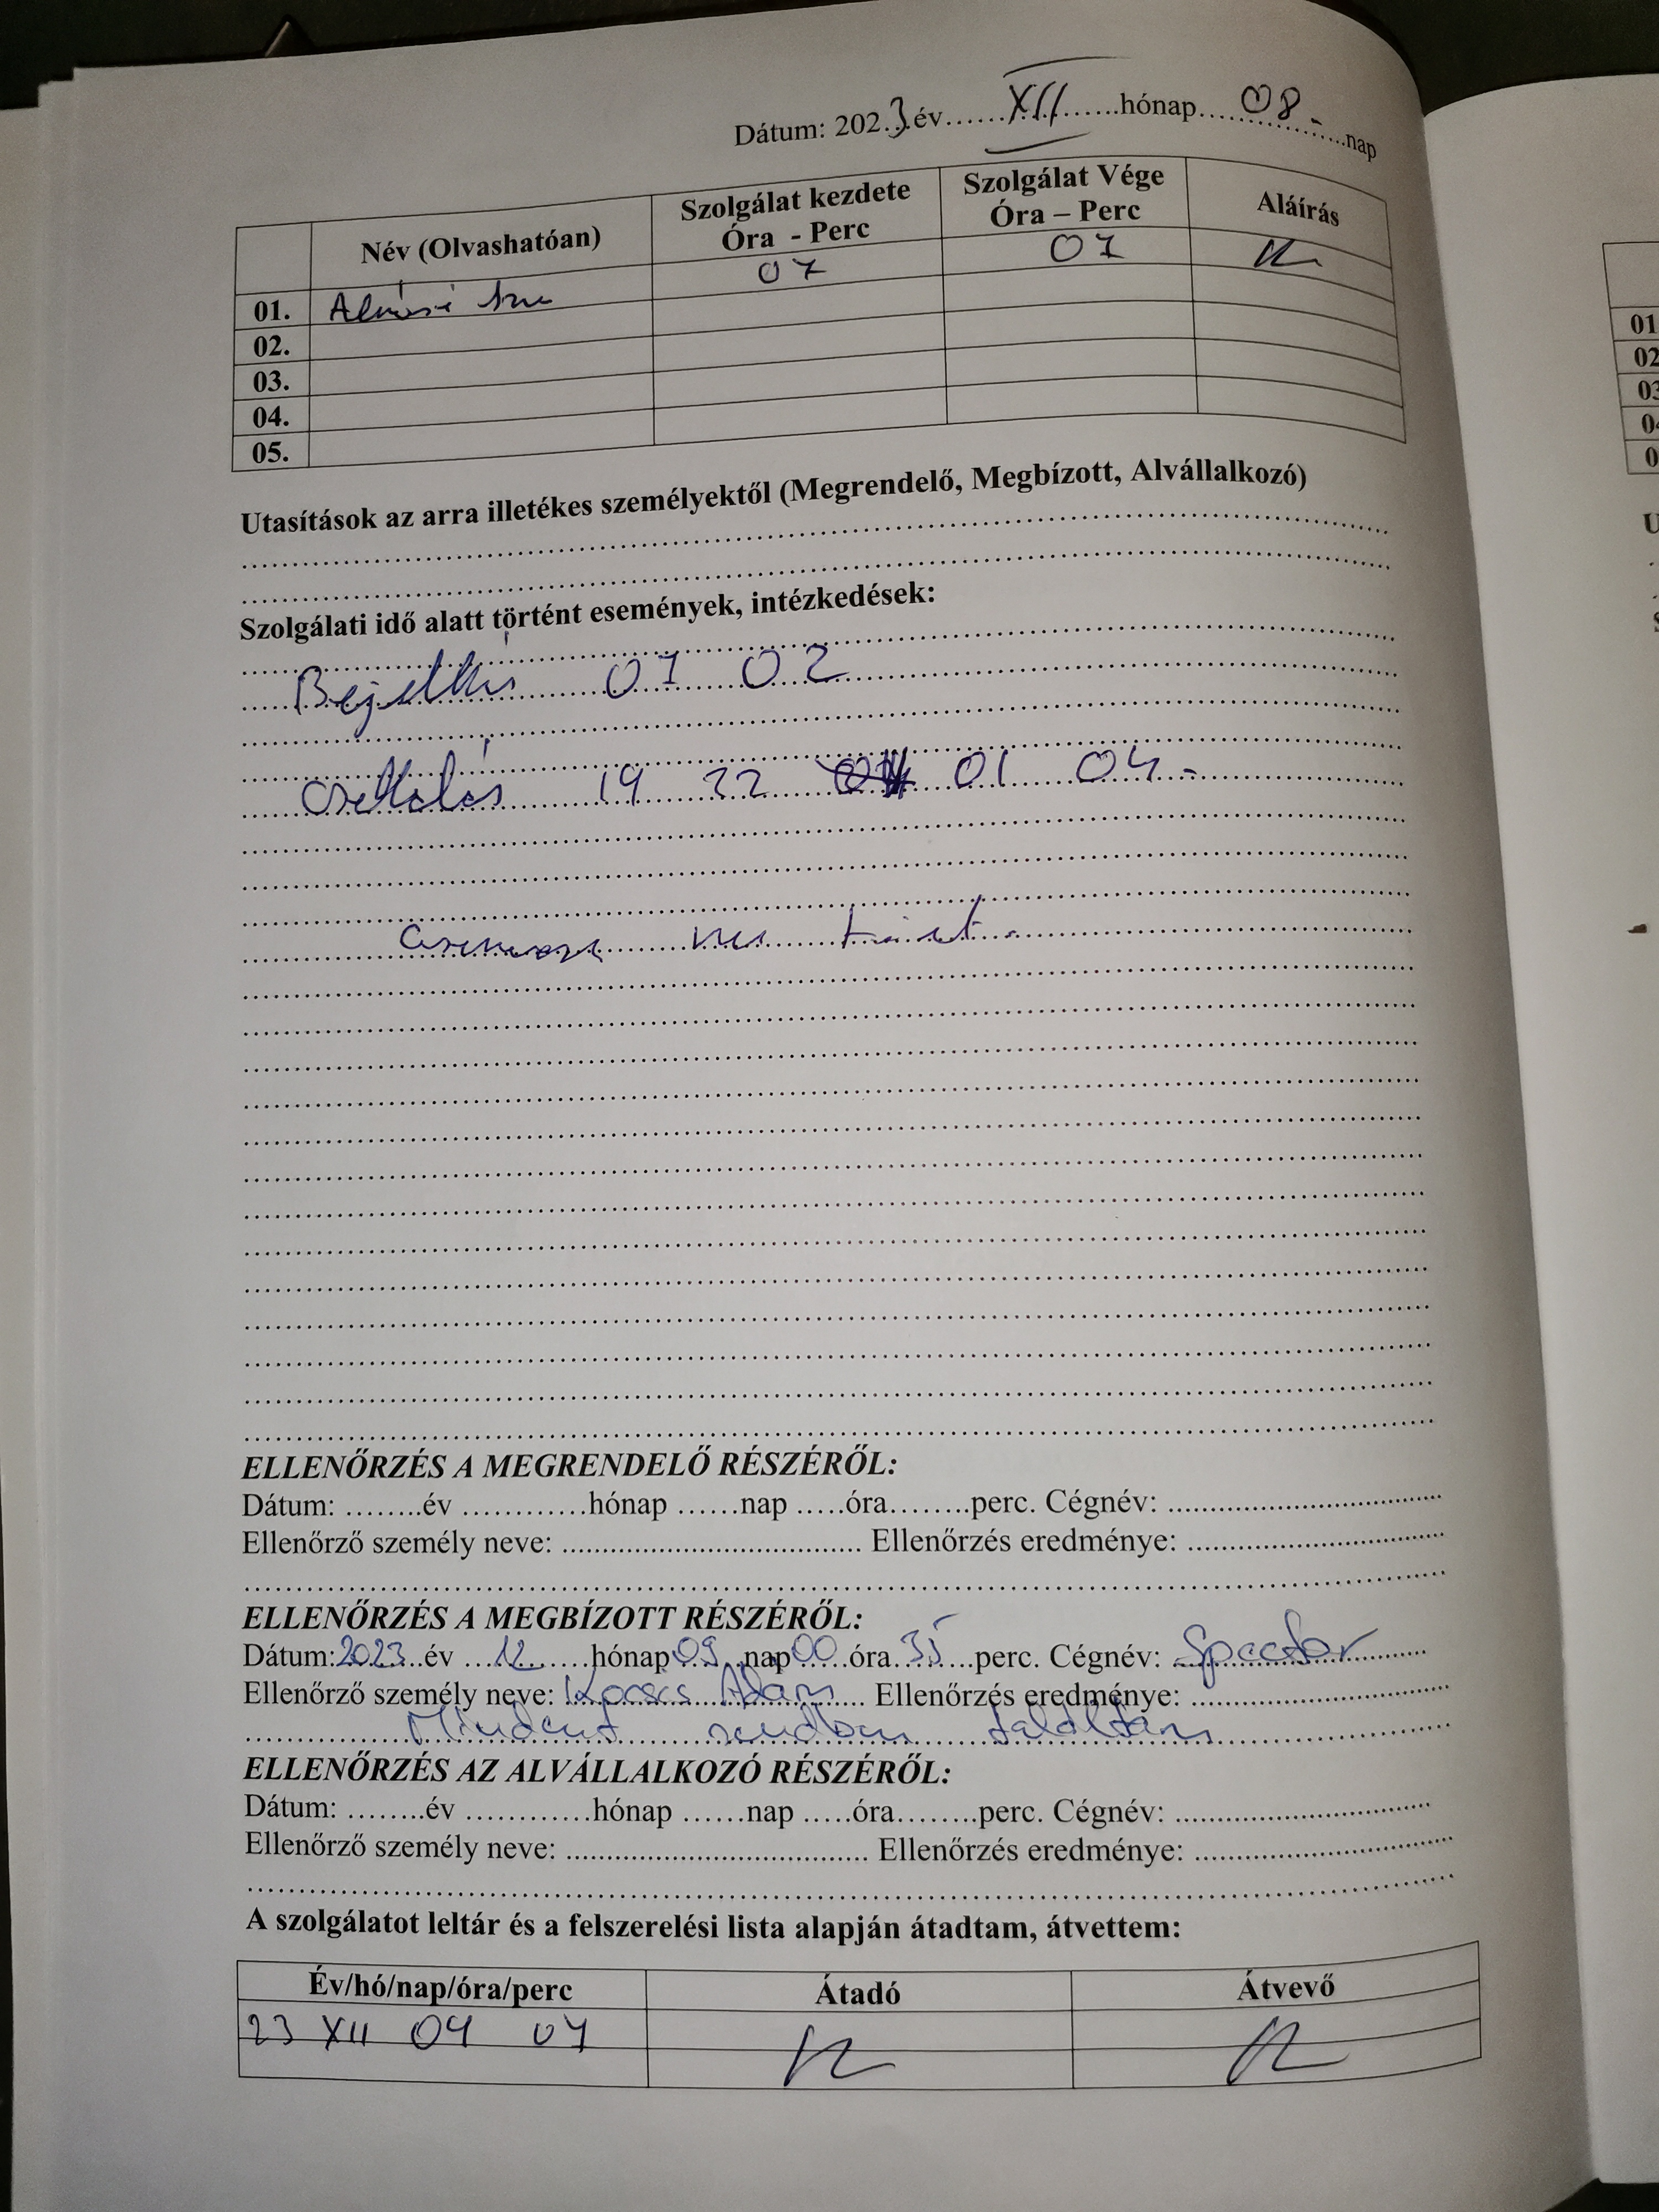 Dátum: 2023 év......XII......hónap....08.-......nap
Név (Olvashatóan) Szolgálat kezdete Óra - Perc Szolgálat Vége Óra – Perc Aláírás
01. 07 07
02.
03.
04.
05.
Utasítások az arra illetékes személyektől (Megrendelő, Megbízott, Alvállalkozó)
Szolgálati idő alatt történt események, intézkedések:
07 02
19 22 01 04-
ELLENŐRZÉS A MEGRENDELŐ RÉSZÉRŐL:
Dátum: ........év ............hónap ......nap .....óra........perc. Cégnév: ..............................
Ellenőrző személy neve: .................................... Ellenőrzés eredménye: ..............................
ELLENŐRZÉS A MEGBÍZOTT RÉSZÉRŐL:
Dátum: 2023 év 12 hónap 09 nap 00 óra 35 perc. Cégnév: Spector
Ellenőrző személy neve: Kocsis Ádám Ellenőrzés eredménye: ..............................
Mindent rendben találtam
ELLENŐRZÉS AZ ALVÁLLALKOZÓ RÉSZÉRŐL:
Dátum: ........év ............hónap ......nap .....óra........perc. Cégnév: ..............................
Ellenőrző személy neve: .................................... Ellenőrzés eredménye: ..............................
A szolgálatot leltár és a felszerelési lista alapján átadtam, átvettem:
Év/hó/nap/óra/perc Átadó Átvevő
23 XII 09 07
01
02
03